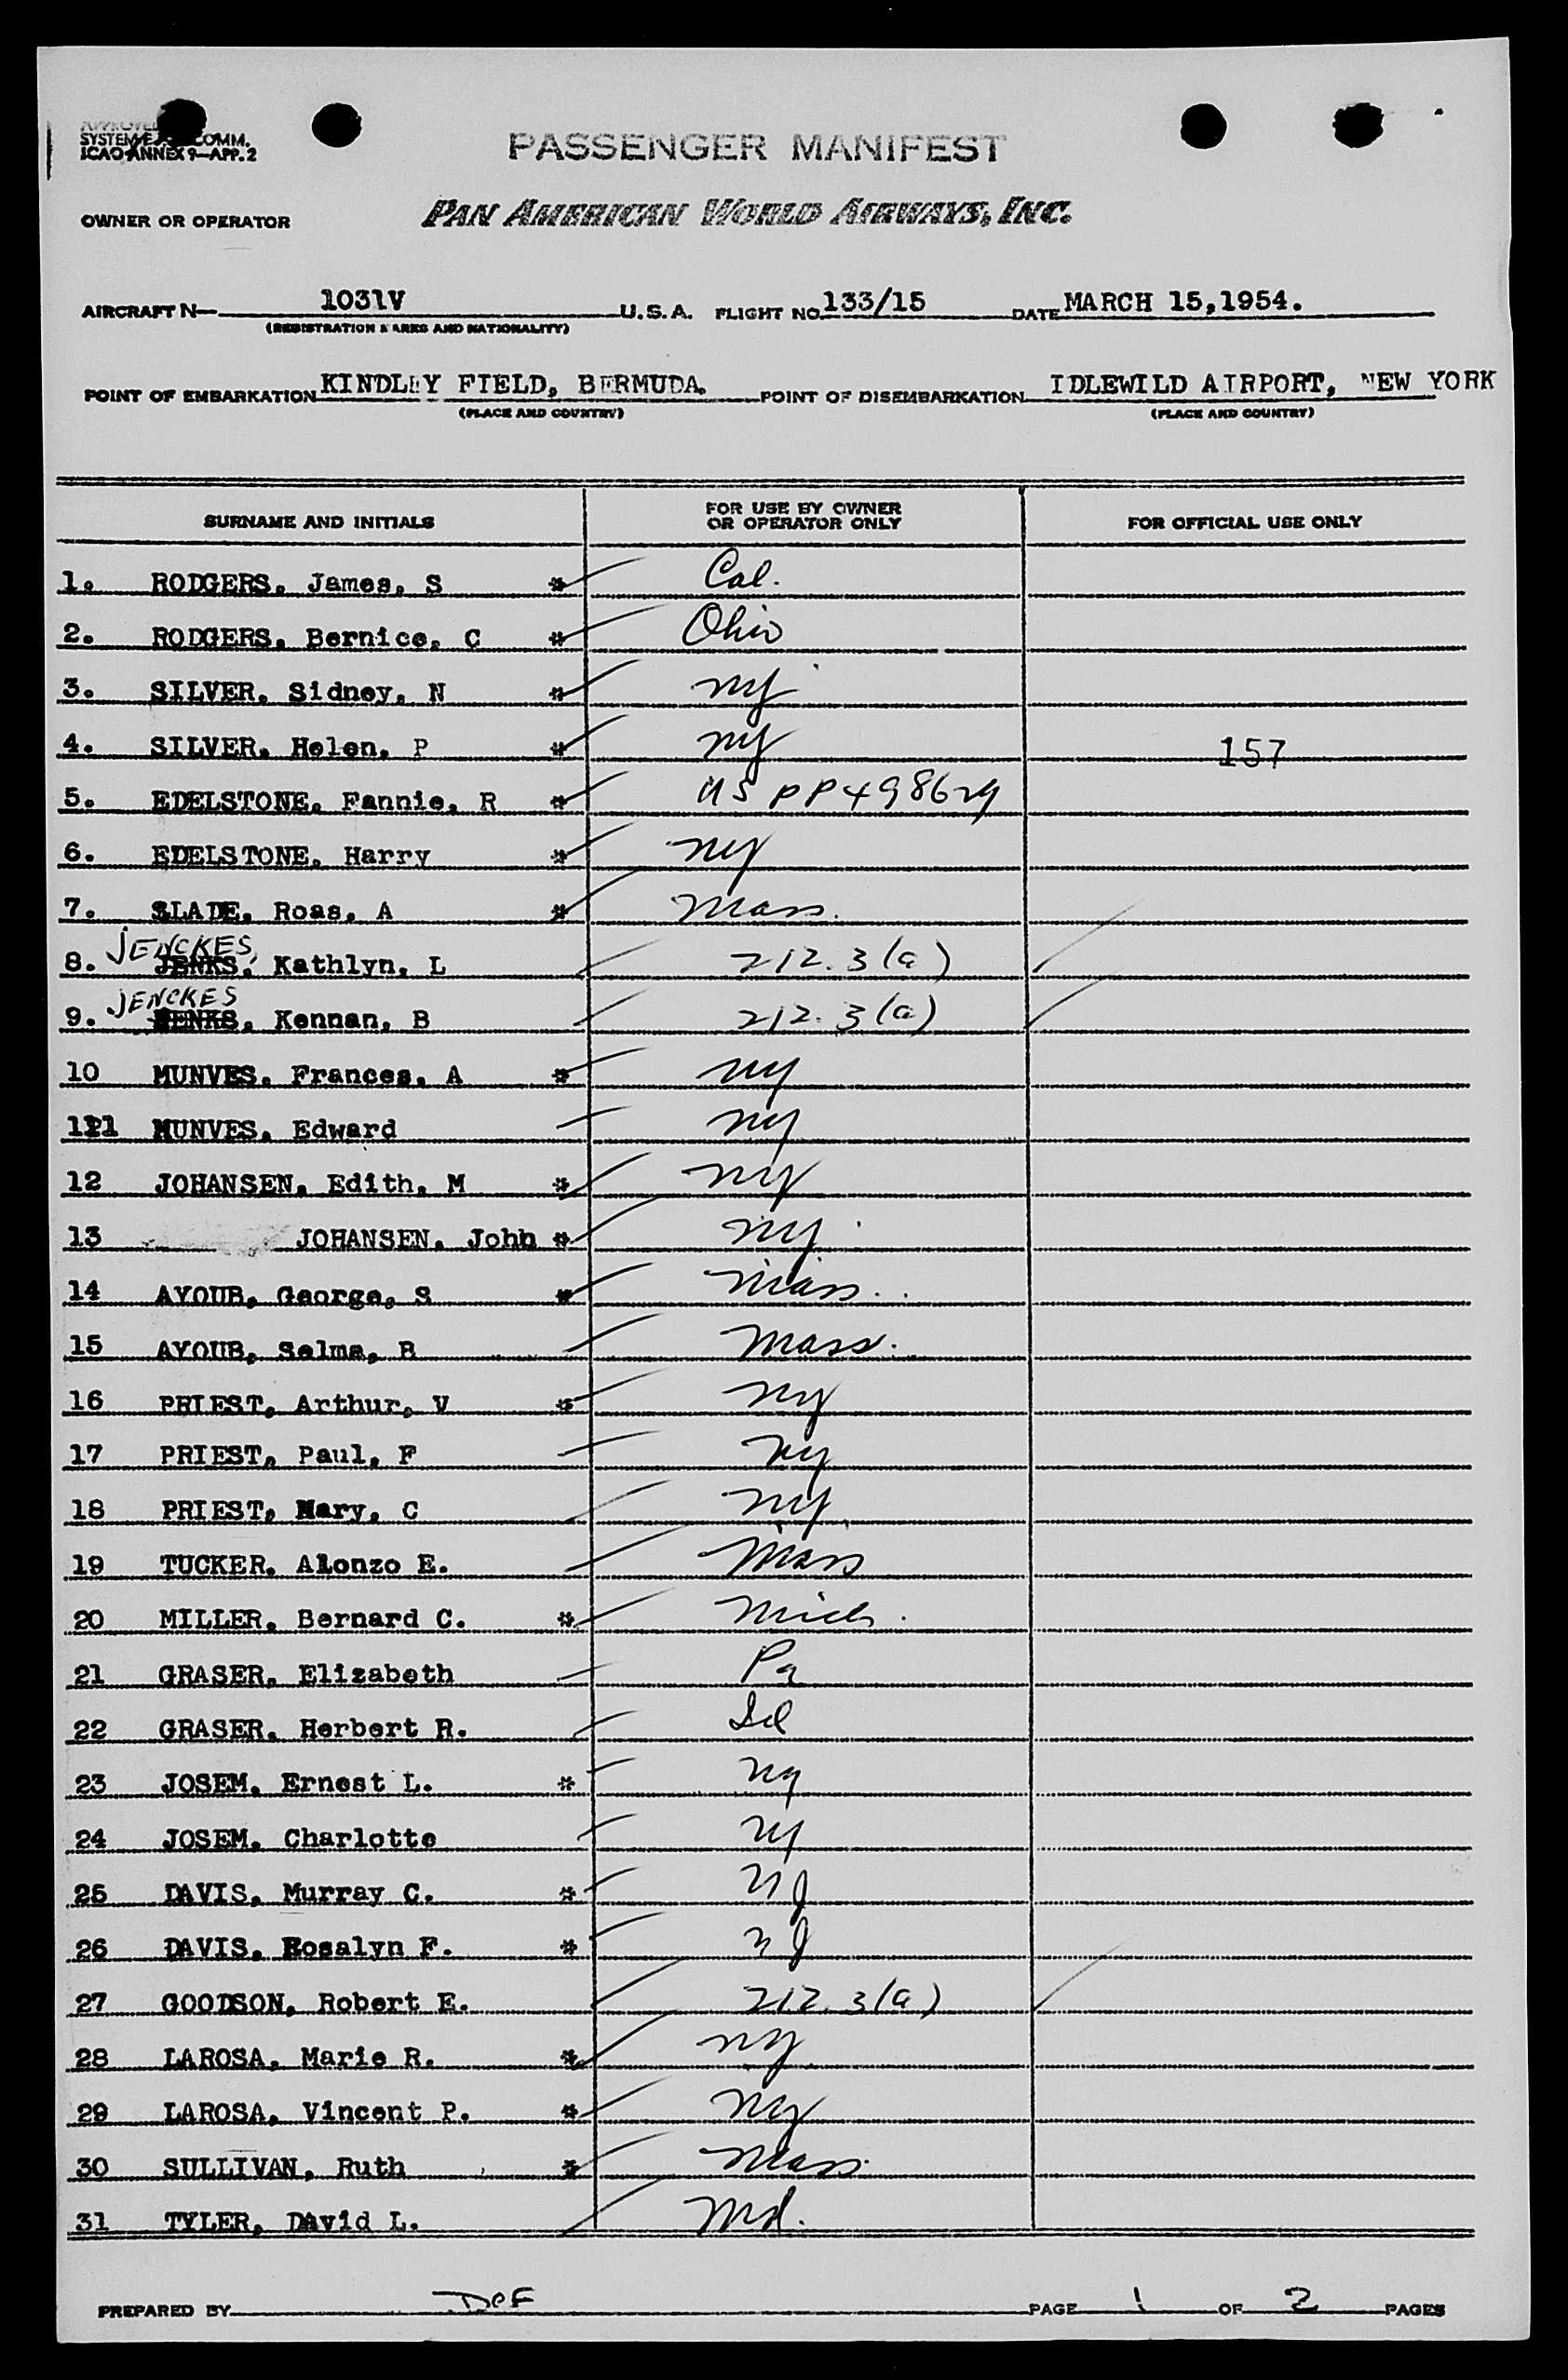 SYSTEM COMM.
ICAO ANNEX 9—APP. 2
PASSENGER MANIFEST
OWNER OR OPERATOR PAN AMERICAN WORLD AIRWAYS, INC.
AIRCRAFT N— 1031V U.S.A. FLIGHT NO. 133/15 DATE MARCH 15,1954.
(REGISTRATION MARKS AND NATIONALITY)
POINT OF EMBARKATION KINDLEY FIELD, BERMUDA. POINT OF DISEMBARKATION IDLEWILD AIRPORT, NEW YORK
(PLACE AND COUNTRY) (PLACE AND COUNTRY)
SURNAME AND INITIALS FOR USE BY OWNER OR OPERATOR ONLY FOR OFFICIAL USE ONLY
1. RODGERS, James, S * Cal.
2. RODGERS, Bernice, C * Ohio
3. SILVER, Sidney, N * NY
4. SILVER, Helen, P * NY 157
5. EDELSTONE, Fannie, R * US PP 498629
6. EDELSTONE, Harry * NY
7. SLADE, Roas, A * Mass.
8. JENCKES, JENKS, Kathlyn, L 212.3(a)
9. JENCKES JENKS, Kennan, B 212.3(a)
10 MUNVES, Frances, A * NY
11 MUNVES, Edward NY
12 JOHANSEN, Edith, M * NY
13 JOHANSEN, John * NY
14 AYOUB, George, S * Mass.
15 AYOUB, Selma, B Mass.
16 PRIEST, Arthur, V * NY
17 PRIEST, Paul, F NY
18 PRIEST, Mary, C NY
19 TUCKER, Alonzo E. Mass
20 MILLER, Bernard C. * Mich.
21 GRASER, Elizabeth Pa
22 GRASER, Herbert R.
23 JOSEM, Ernest L. * NY
24 JOSEM, Charlotte NY
25 DAVIS, Murray C. * NJ
26 DAVIS, Rosalyn F. * NJ
27 GOODSON, Robert E. 212.3(a)
28 LAROSA, Marie R. * NY
29 LAROSA, Vincent P. * NY
30 SULLIVAN, Ruth * Mass.
31 TYLER, DAvid L. Md.
PREPARED BY DeF PAGE 1 OF 2 PAGES